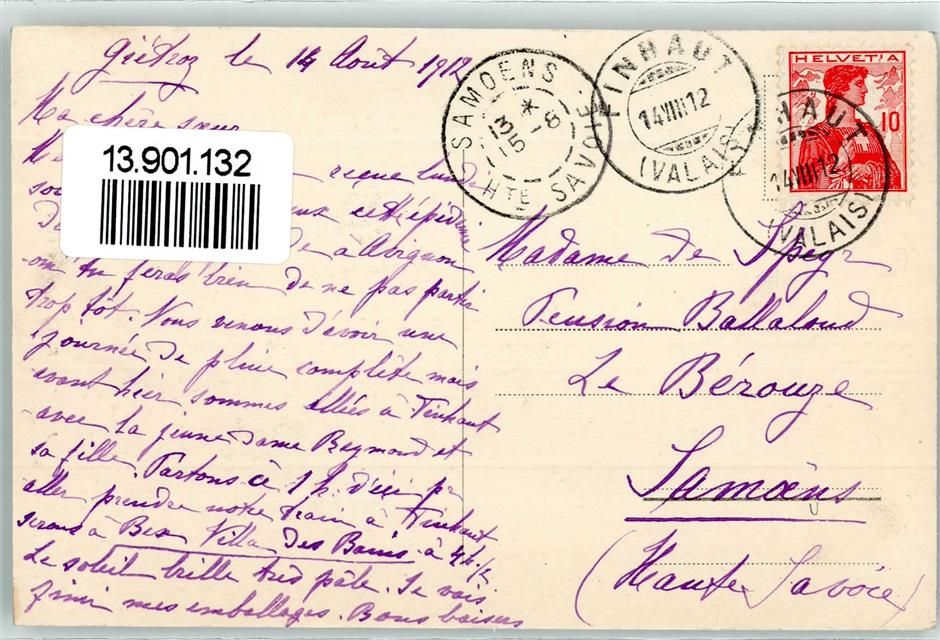 Giétroz le 14 Août 1912
Ma chère sœur
reçue lundi
cette épidémie
à Avignon
tu feras bien de ne pas partir
trop tôt. Nous venons d'avoir une
journée de pluie complète mais
avant hier sommes allées à Finhaut
avec la jeune dame Reymond et
sa fille. Partons à 1 h. d'ici pr
aller prendre notre train à Finhaut
serons à Bex Villa des Bains à 4h.1/2
Le soleil brille très pâle. Je vais
finir mes emballages. Bons baisers
13.901.132
SAMOENS
13 15-8
HTE SAVOIE
FINHAUT
14 VIII 12
(VALAIS)
HELVETIA
10
HAUT
14 VIII 12
(VALAIS)
Madame de Speyr
Pension Ballaloud
Le Bérouze
Samoëns
(Haute Savoie)